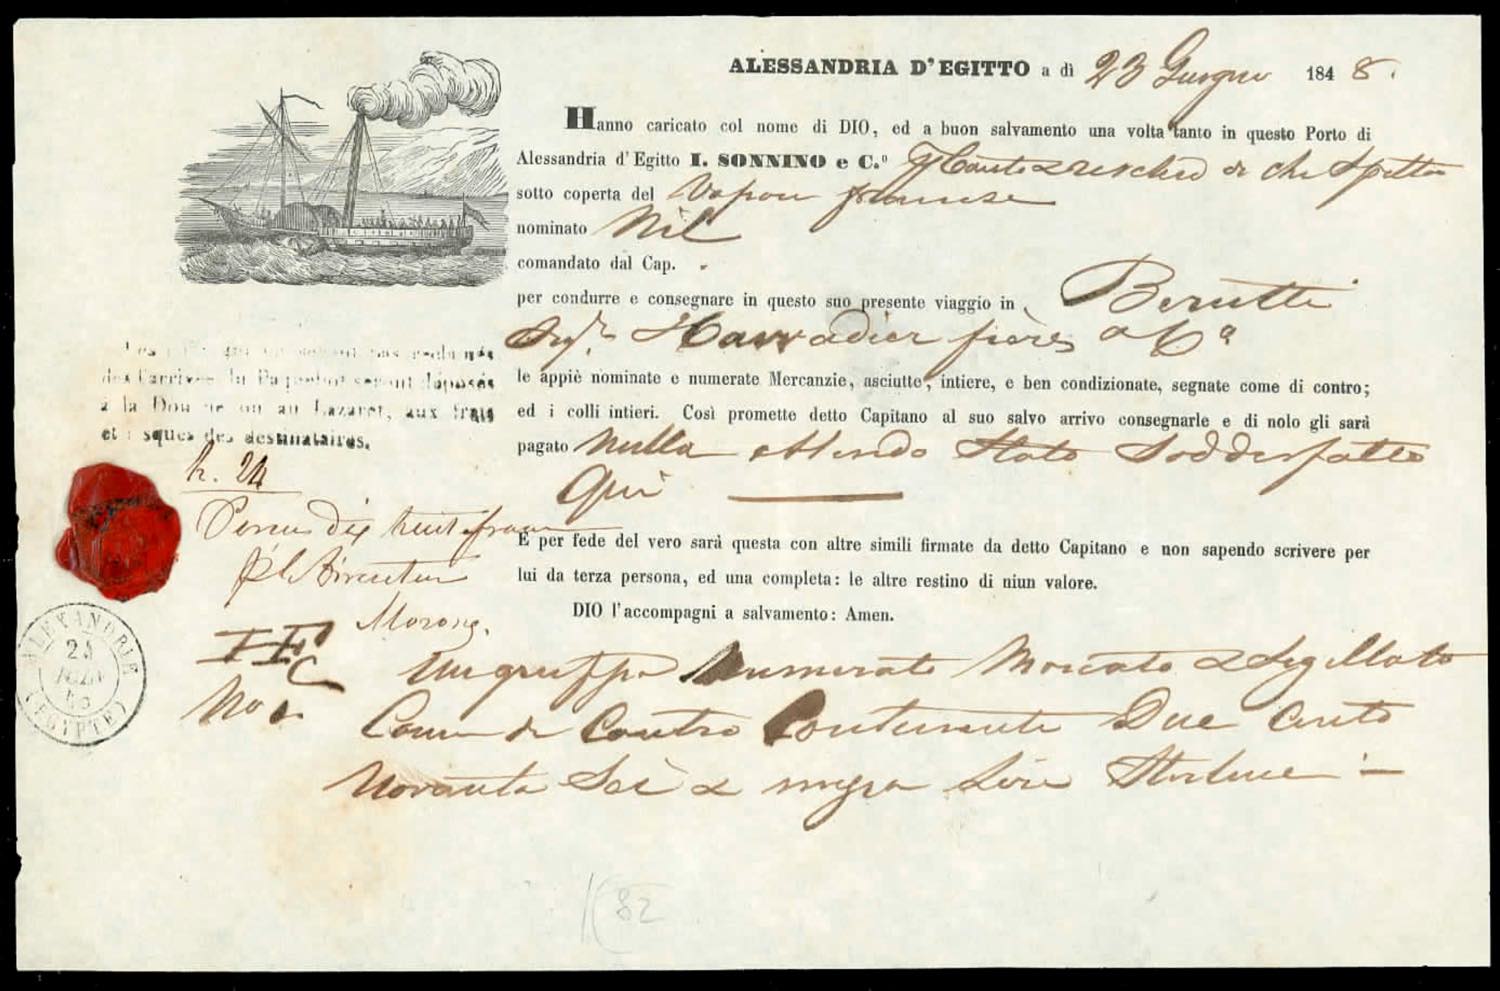 ALESSANDRIA D'EGITTO a dì 23 Giugno 1848.
Hanno caricato col nome di DIO, ed a buon salvamento una volta tanto in questo Porto di
Alessandria d'Egitto I. SONNINO e C.º p Conto & rischio di chi Spetta
sotto coperta del Vapore francese
nominato Nil
comandato dal Cap. .
per condurre e consegnare in questo suo presente viaggio in Berutti
frères & Cª
le appiè nominate e numerate Mercanzie, asciutte, intiere, e ben condizionate, segnate come di contro;
ed i colli intieri. Così promette detto Capitano al suo salvo arrivo consegnarle e di nolo gli sarà
pagato Nulla essendo Stato Soddisfatto
Qui
E per fede del vero sarà questa con altre simili firmate da detto Capitano e non sapendo scrivere per
lui da terza persona, ed una completa: le altre restino di niun valore.
DIO l'accompagni a salvamento: Amen.
Un gruppo Numerato Marcato & Sigillato
Come di Contro Contenente Due Cento
Novanta Sei & mezza Lire Sterline
des l'arrivée du Paquebot seront déposés
à la Douane ou au Lazaret, aux frais
et risques des destinataires.
h. 24
dix huit francs
Pr le Directeur
ALEXANDRIE
(EGYPTE)
82